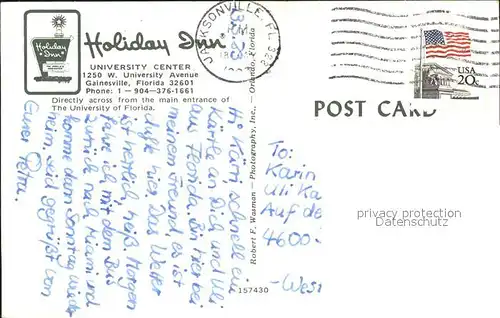 Holiday Inn
Holiday Inn®
UNIVERSITY CENTER
1250 W. University Avenue
Gainesville, Florida 32601
Phone: 1 - 904-376-1661
Directly across from the main entrance of
The University of Florida.
JACKSONVILLE, FL
PM
USA
20c
POST CARD
Robert F. Wasman — Photography, Inc., — Orlando, Florida
157430
schnell ein
Kärtle an Dich und Uli
aus Florida. Bin hier bei
meinem Freund es ist
dufte hier. Das Wetter
ist herrlich, heiß. Morgen
fahre ich mit dem Bus
zurück nach Miami und
komme dann Sonntag wieder
heim. Seid gegrüßt von
Eurer Petra.
To:
Karin
Uli Ka
Auf de
4600
-West
privacy protection
Datenschutz